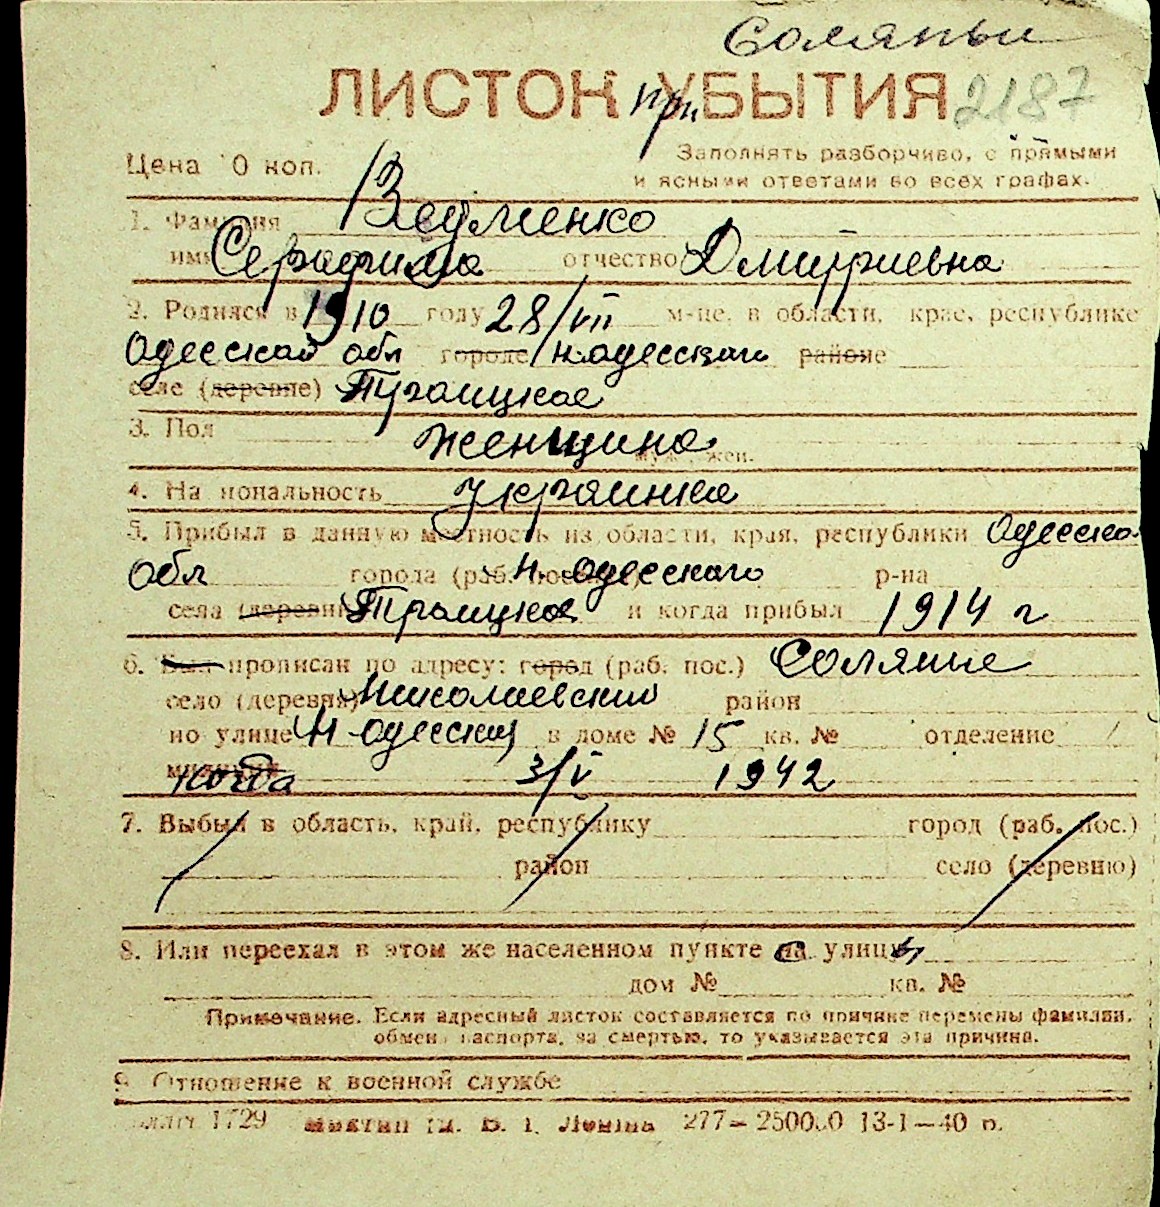 Соляные
ЛИСТОК при УБЫТИЯ 2187
Цена 10 коп. Заполнять разборчиво, с прямыми
и ясными ответами во всех графах.
1. Фамилия Ведменко
имя Серафима отчество Дмитриевна
2. Родился в 1910 году 28/VII м-це, в области, крае, республике
Одесской обл городе Н.одесского районе
селе (деревне) Троицкое
3. Пол женщина
муж., жен.
4. Национальность украинка
5. Прибыл в данную местность из области, края, республики Одесско
обл города (раб. пос.) Н-одесского р-на
села (деревни) Троицкое и когда прибыл 1914 г
6. Был прописан по адресу: город (раб. пос.) Соляные
село (деревня) Николаевский район
по улице Н-одесский в доме № 15 кв. № отделение
милиции когда 3/V 1942
7. Выбыл в область, край, республику город (раб. пос.)
район село (деревню)
8. Или переехал в этом же населенном пункте с улицы
дом № кв. №
Примечание. Если адресный листок составляется по причине перемены фамилии,
обмена паспорта, за смертью, то указывается эта причина.
9. Отношение к военной службе
1729 Ленина 277—250000 13-1—40 р.